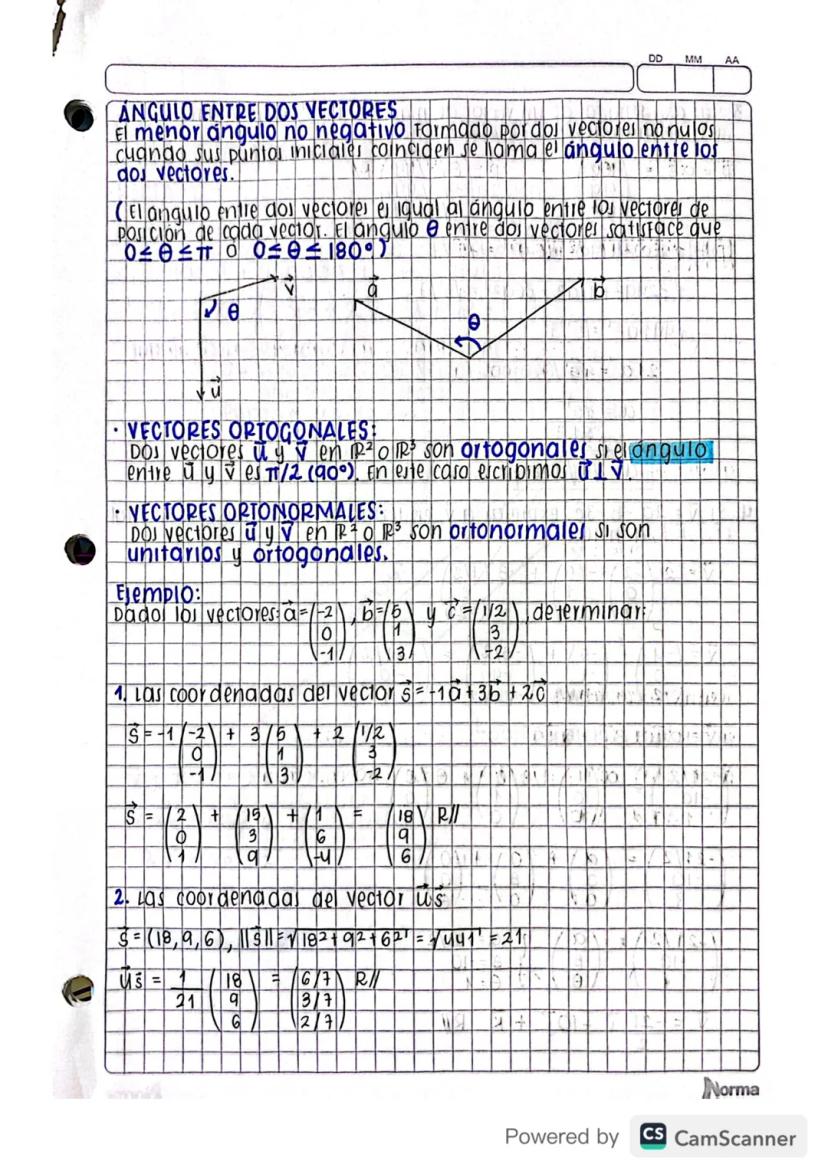 DD MM AA
ÁNGULO ENTRE DOS VECTORES
El menor ángulo no negativo formado por dos vectores no nulos
cuando sus puntos iniciales coinciden se llama el ángulo entre los
dos vectores.
(El angulo entre dos vectores es igual al ángulo entre los vectores de
posición de cada vector. El angulo θ entre dos vectores satisface que
0 ≤ θ ≤ π ó 0 ≤ θ ≤ 180°)
v⃗ a⃗ b⃗
θ θ
u⃗
· VECTORES ORTOGONALES:
Dos vectores u⃗ y v⃗ en ℝ² o ℝ³ son ortogonales si el ángulo
entre u⃗ y v⃗ es π/2 (90°). En este caso escribimos u⃗ ⊥ v⃗.
· VECTORES ORTONORMALES:
Dos vectores u⃗ y v⃗ en ℝ² o ℝ³ son ortonormales si son
unitarios y ortogonales.
Ejemplo:
Dados los vectores: a⃗ = (-2, b⃗ = (5 y c⃗ = (1/2, determinar:
0 1 3
-1) 3) -2)
1. Las coordenadas del vector s⃗ = -1a⃗ + 3b⃗ + 2c⃗
s⃗ = -1 (-2 + 3 (5 + 2 (1/2
0 1 3
-1) 3) -2)
s⃗ = (2 + (15 + (1 = (18 R//
0 3 6 9
1) 9) -4) 6)
2. Las coordenadas del vector u⃗s⃗
s⃗ = (18, 9, 6), ||s⃗|| = √18² + 9² + 6² = √441 = 21
u⃗s⃗ = 1 (18 = (6/7 R//
21 9 3/7
6) 2/7)
Norma
Powered by CS CamScanner